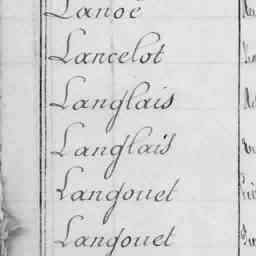 Lanoe
Lancelot
Langlais
Langlais
Langouet
Langouet